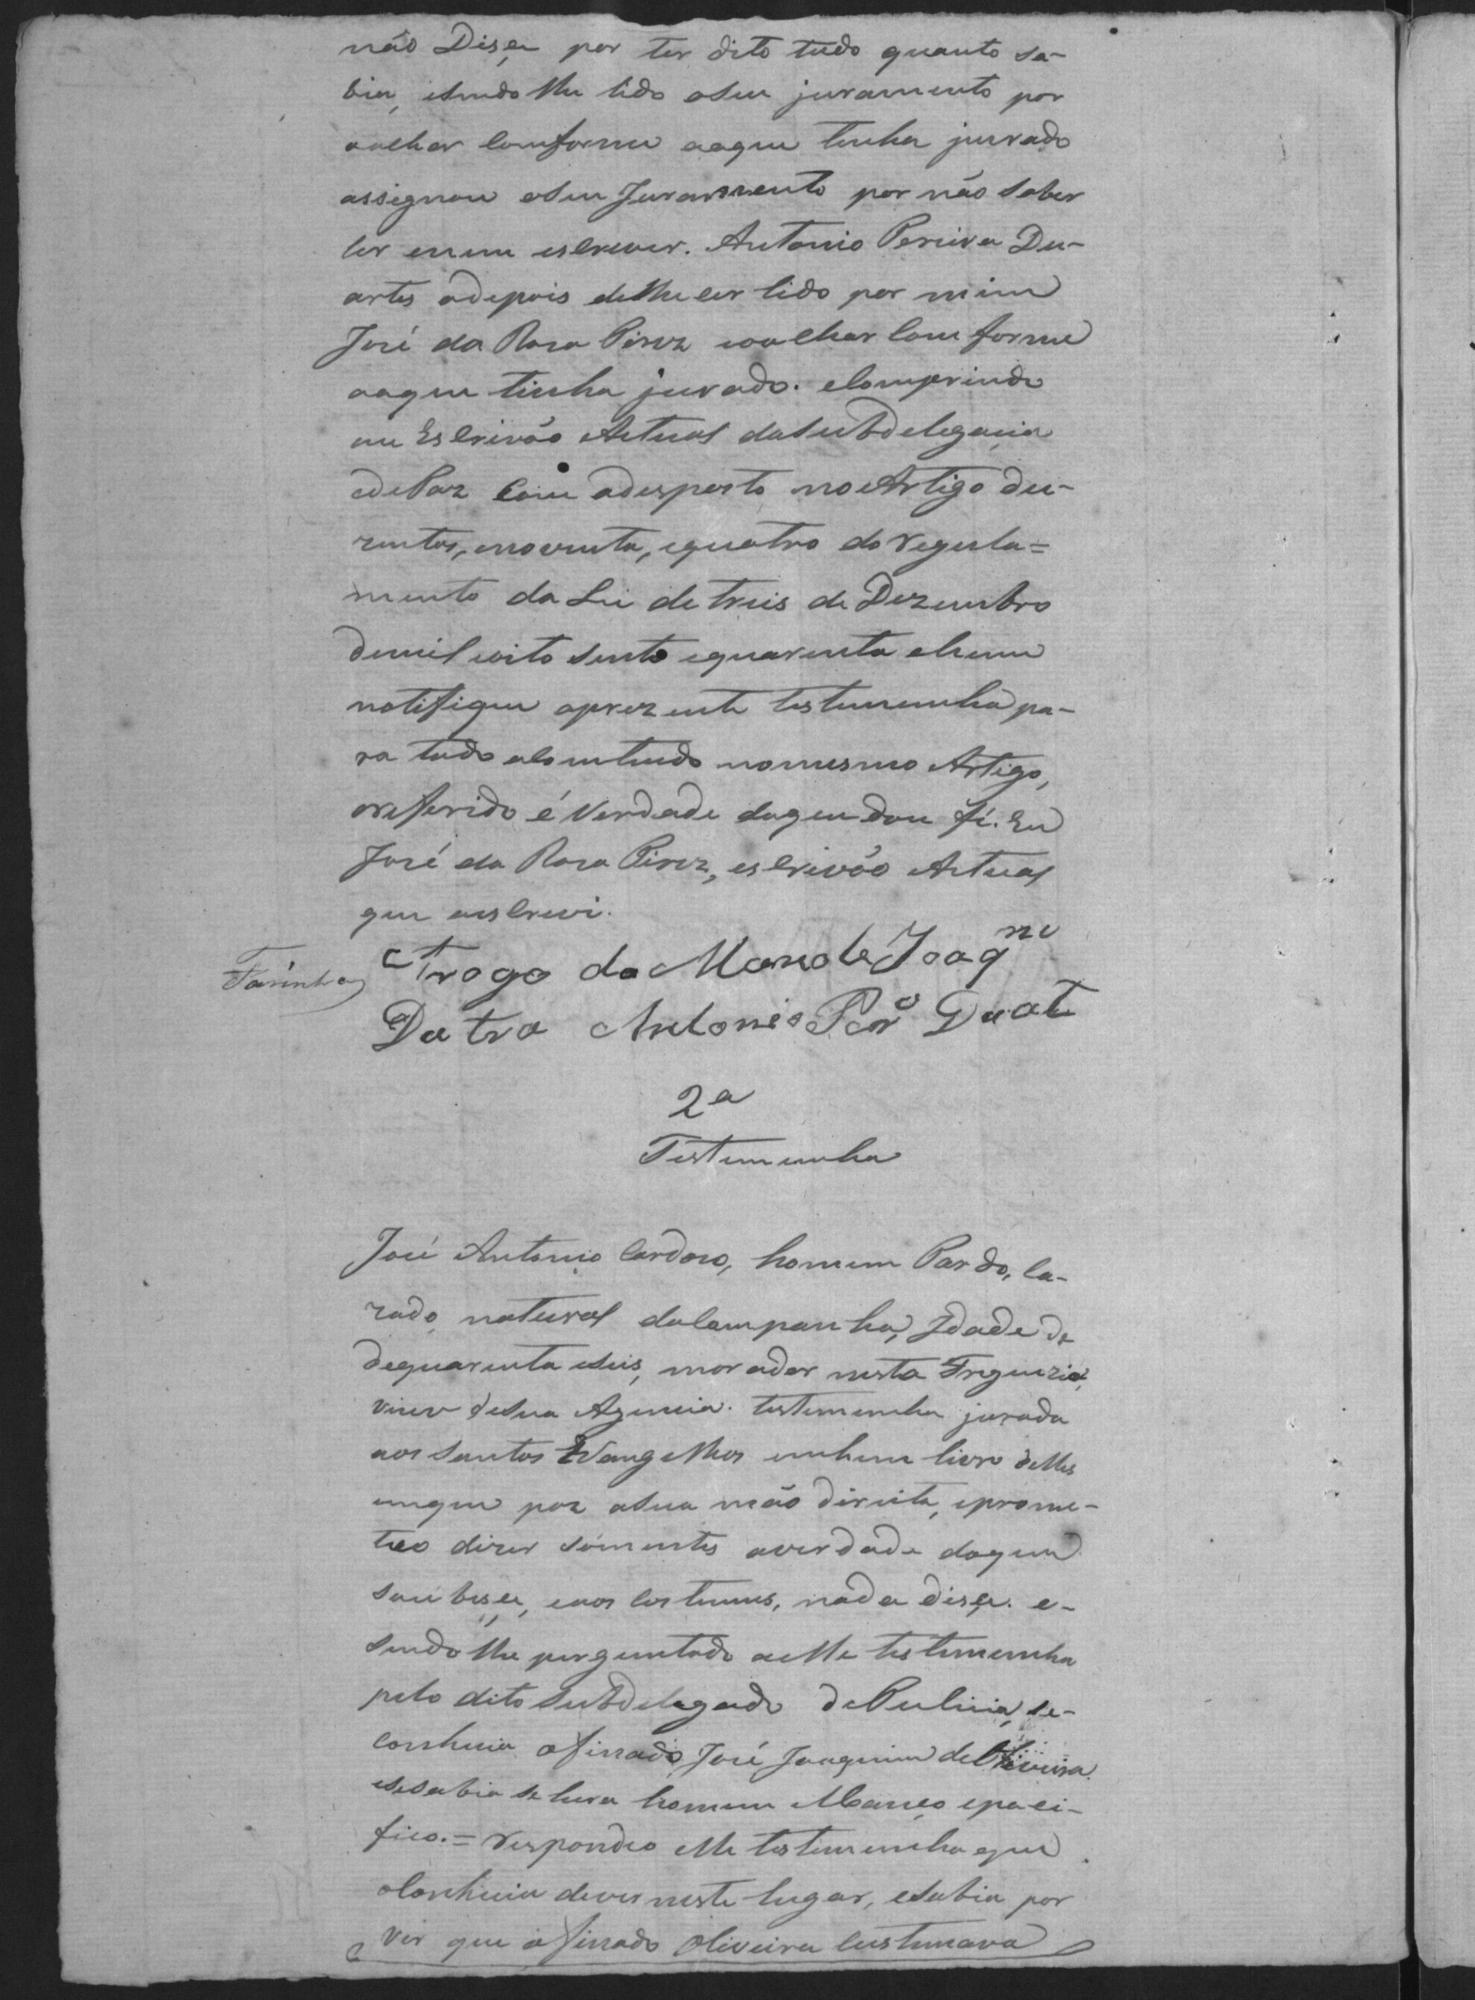 não Dise por ter dito tudo quanto sa-
bia, esendo lhe lido oseu juramento por
oachar Comforme aoque tinha jurado
assignou oseu Juramento por não saber
ler enem escrever. Antonio Pereira Du-
artes odepois delhe ser lido por mim
José da Roza Pirez eoachar Com forme
aoque tinha jurado. eComprindo
eu Escrivão Actual daSubdelegacia
edePaz Com adesposto noArtigo du-
zentos, enoventa, equatro do regula=
mento da Lei de treis de Dezembro
demil oito sento equarenta ehum
notifiquei aprezente testemunha pa-
ra tudo oComtiudo nomesmo Artigo,
oreferido é Verdade doque dou fé. Eu
José da Roza Pirez, escrivão Actual
que oescrevi.
Farinha
Arogo de Manoel Joaqm
Dutra Antonio Perº Duat
2ª
Testemunha
José Antonio Cardozo, homem Pardo, Ca-
zado, natural daCampanha, Idade de
dequarenta eseis, morador nesta Freguezia,
viver desua Agencia. testemunha jurada
aos Santos Evangelhos emhum livro delles
emque poz asua mão direita, eprome-
teo dizer sómentes averdade doque
soubese, eaos Costumes, nada dise. e-
sendo lhe perguntado aelle testemunha
pelo dito Subdelegado dePulicia, se-
Conhecia ofinado José Joaquim deOliveira
esesabia se hera homem Manço epaci-
fico. = respondeo elle testemunha que
oConhecia dever neste lugar, esabia por
ver que ofinado Oliveira Custumava